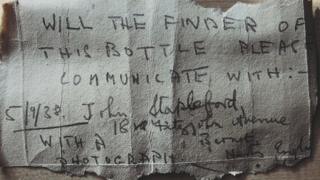 WILL THE FINDER OF
THIS BOTTLE PLEAS
COMMUNICATE WITH:-
5/9/38. John Stapleford,
18 Avenue
WITH A
PHOTOGRAPH